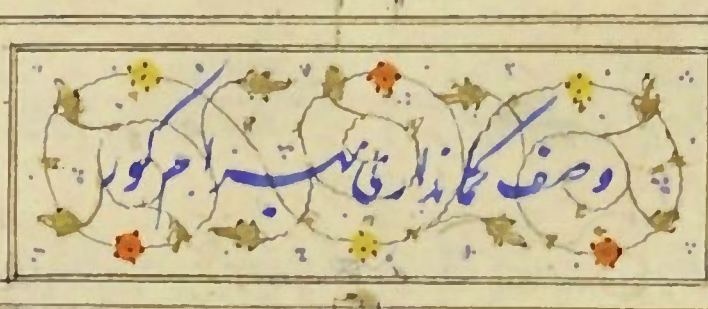 وصف کمانداری بهرام گور